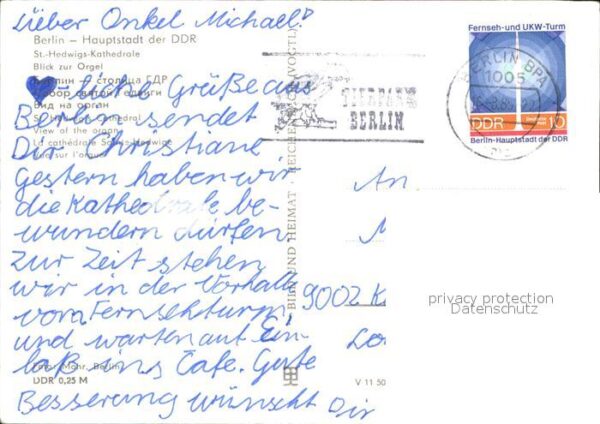 Lieber Onkel Michael!
Berlin – Hauptstadt der DDR
St.-Hedwigs-Kathedrale
Blick zur Orgel
Берлин — столица ГДР
Вид на орган
View of the organ
La cathédrale Sainte-Hedwige
Vue sur l'orgue
♥liche Grüße aus
Berlin sendet
Dir Christiane
Gestern haben wir
die Kathedrale be-
wundern dürfen
Zur Zeit stehen
wir in der Vorhalle
vom Fernsehturm
und warten auf Ein-
laß ins Cafe. Gute
Besserung wünscht Dir
Foto: Mohr, Berlin
DDR 0,25 M
BILD UND HEIMAT · REICHENBACH (VOGTL)
V 11 50
TIERPARK
BERLIN
BERLIN BPA
1005
Fernseh-und UKW-Turm
DDR 10
Berlin-Hauptstadt der DDR
An
9002 K
privacy protection
Datenschutz